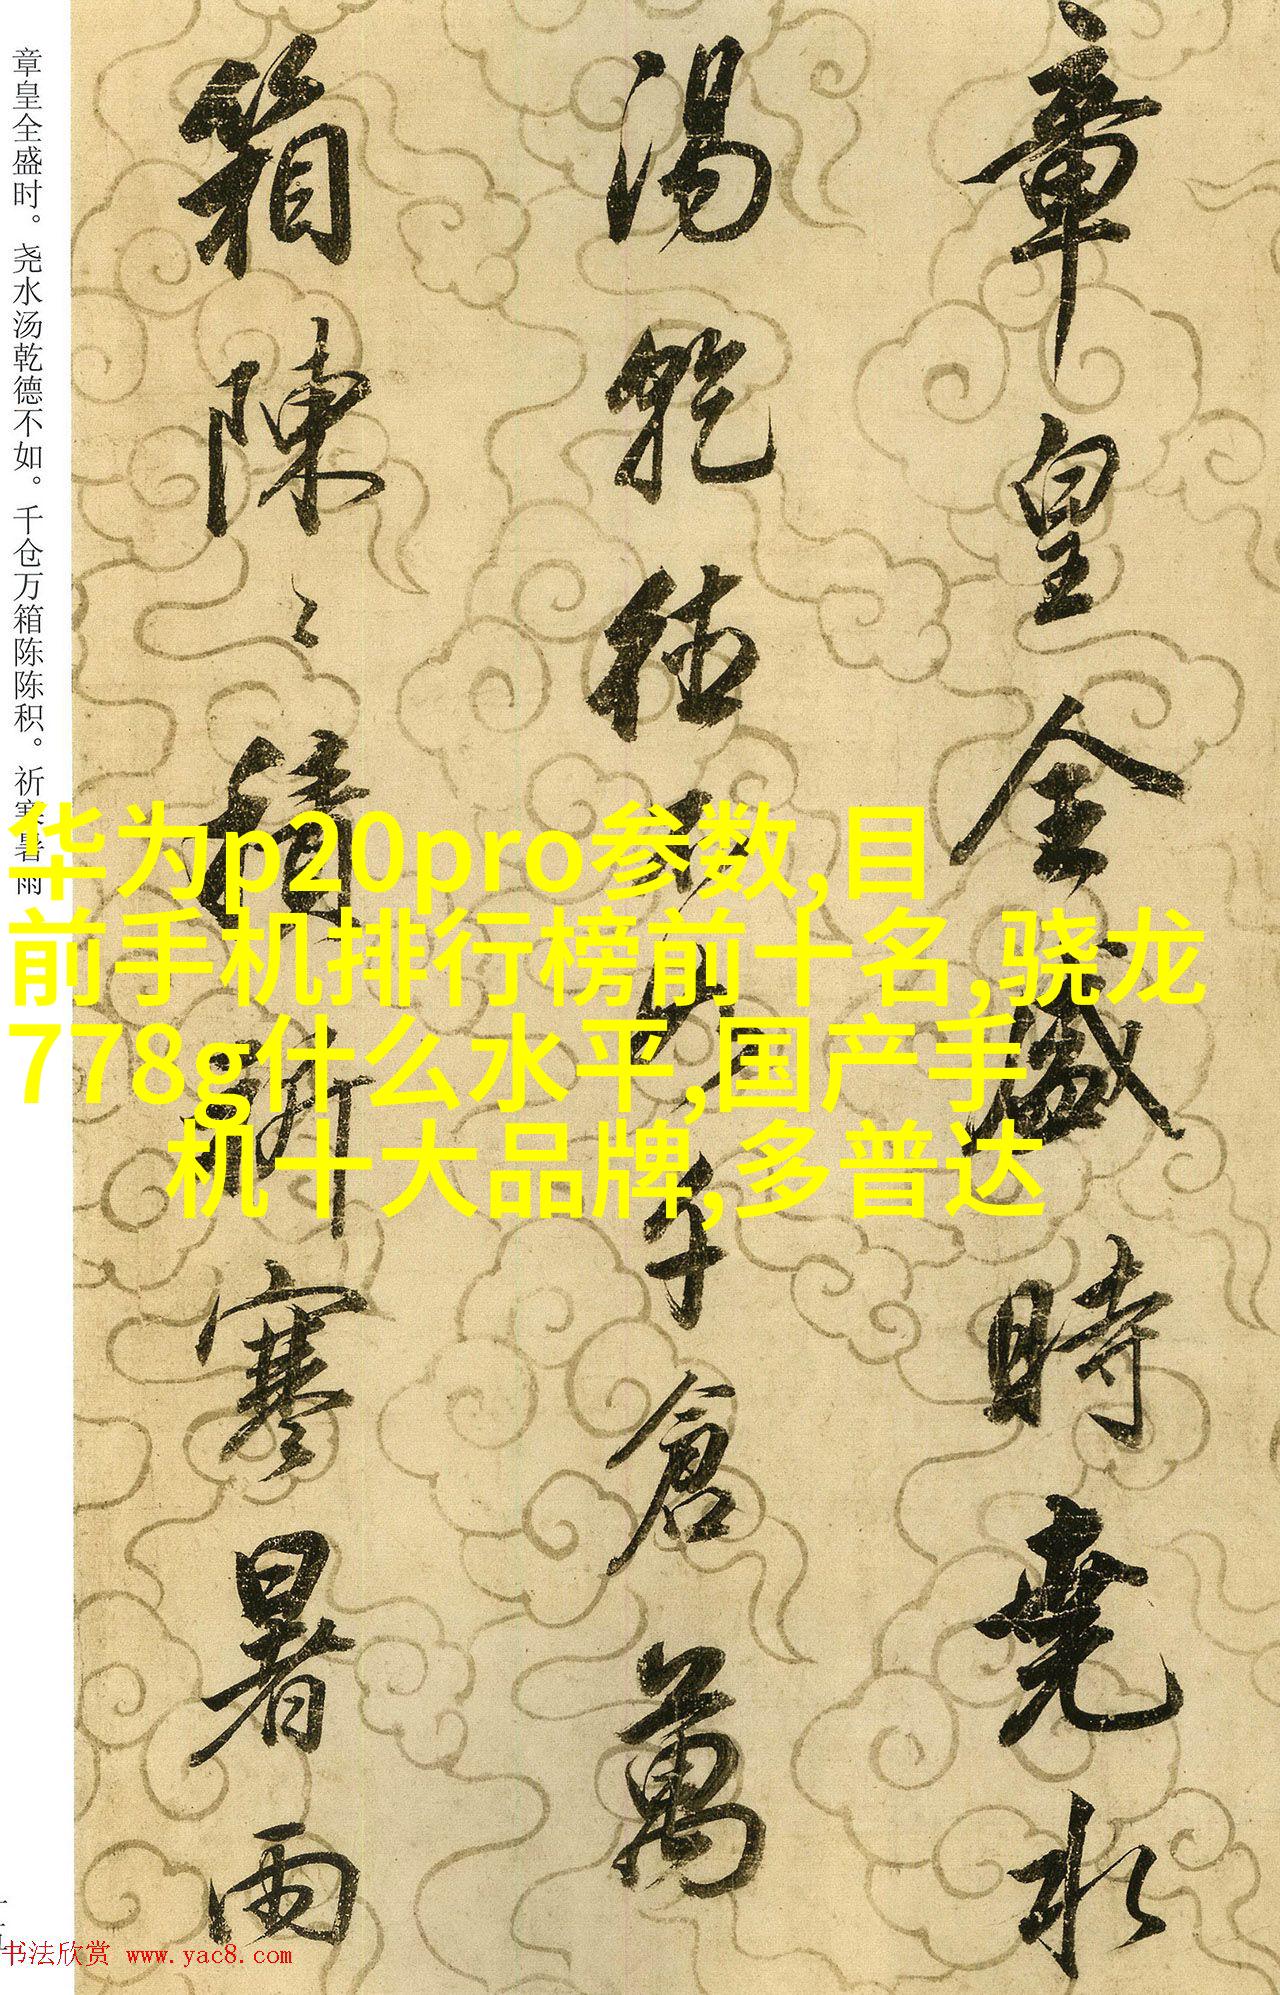 章皇全盛時堯水
湯乾德不如千倉萬
箱陳〻積祈寒暑雨
章皇全盛时。尧水汤乾德不如。千仓万箱陈陈积。祈寒暑雨
华为p20pro参数,目
前手机排行榜前十名,骁龙
778g什么水平,国产手
机十大品牌,多普达
书法欣赏 www.yac8.com